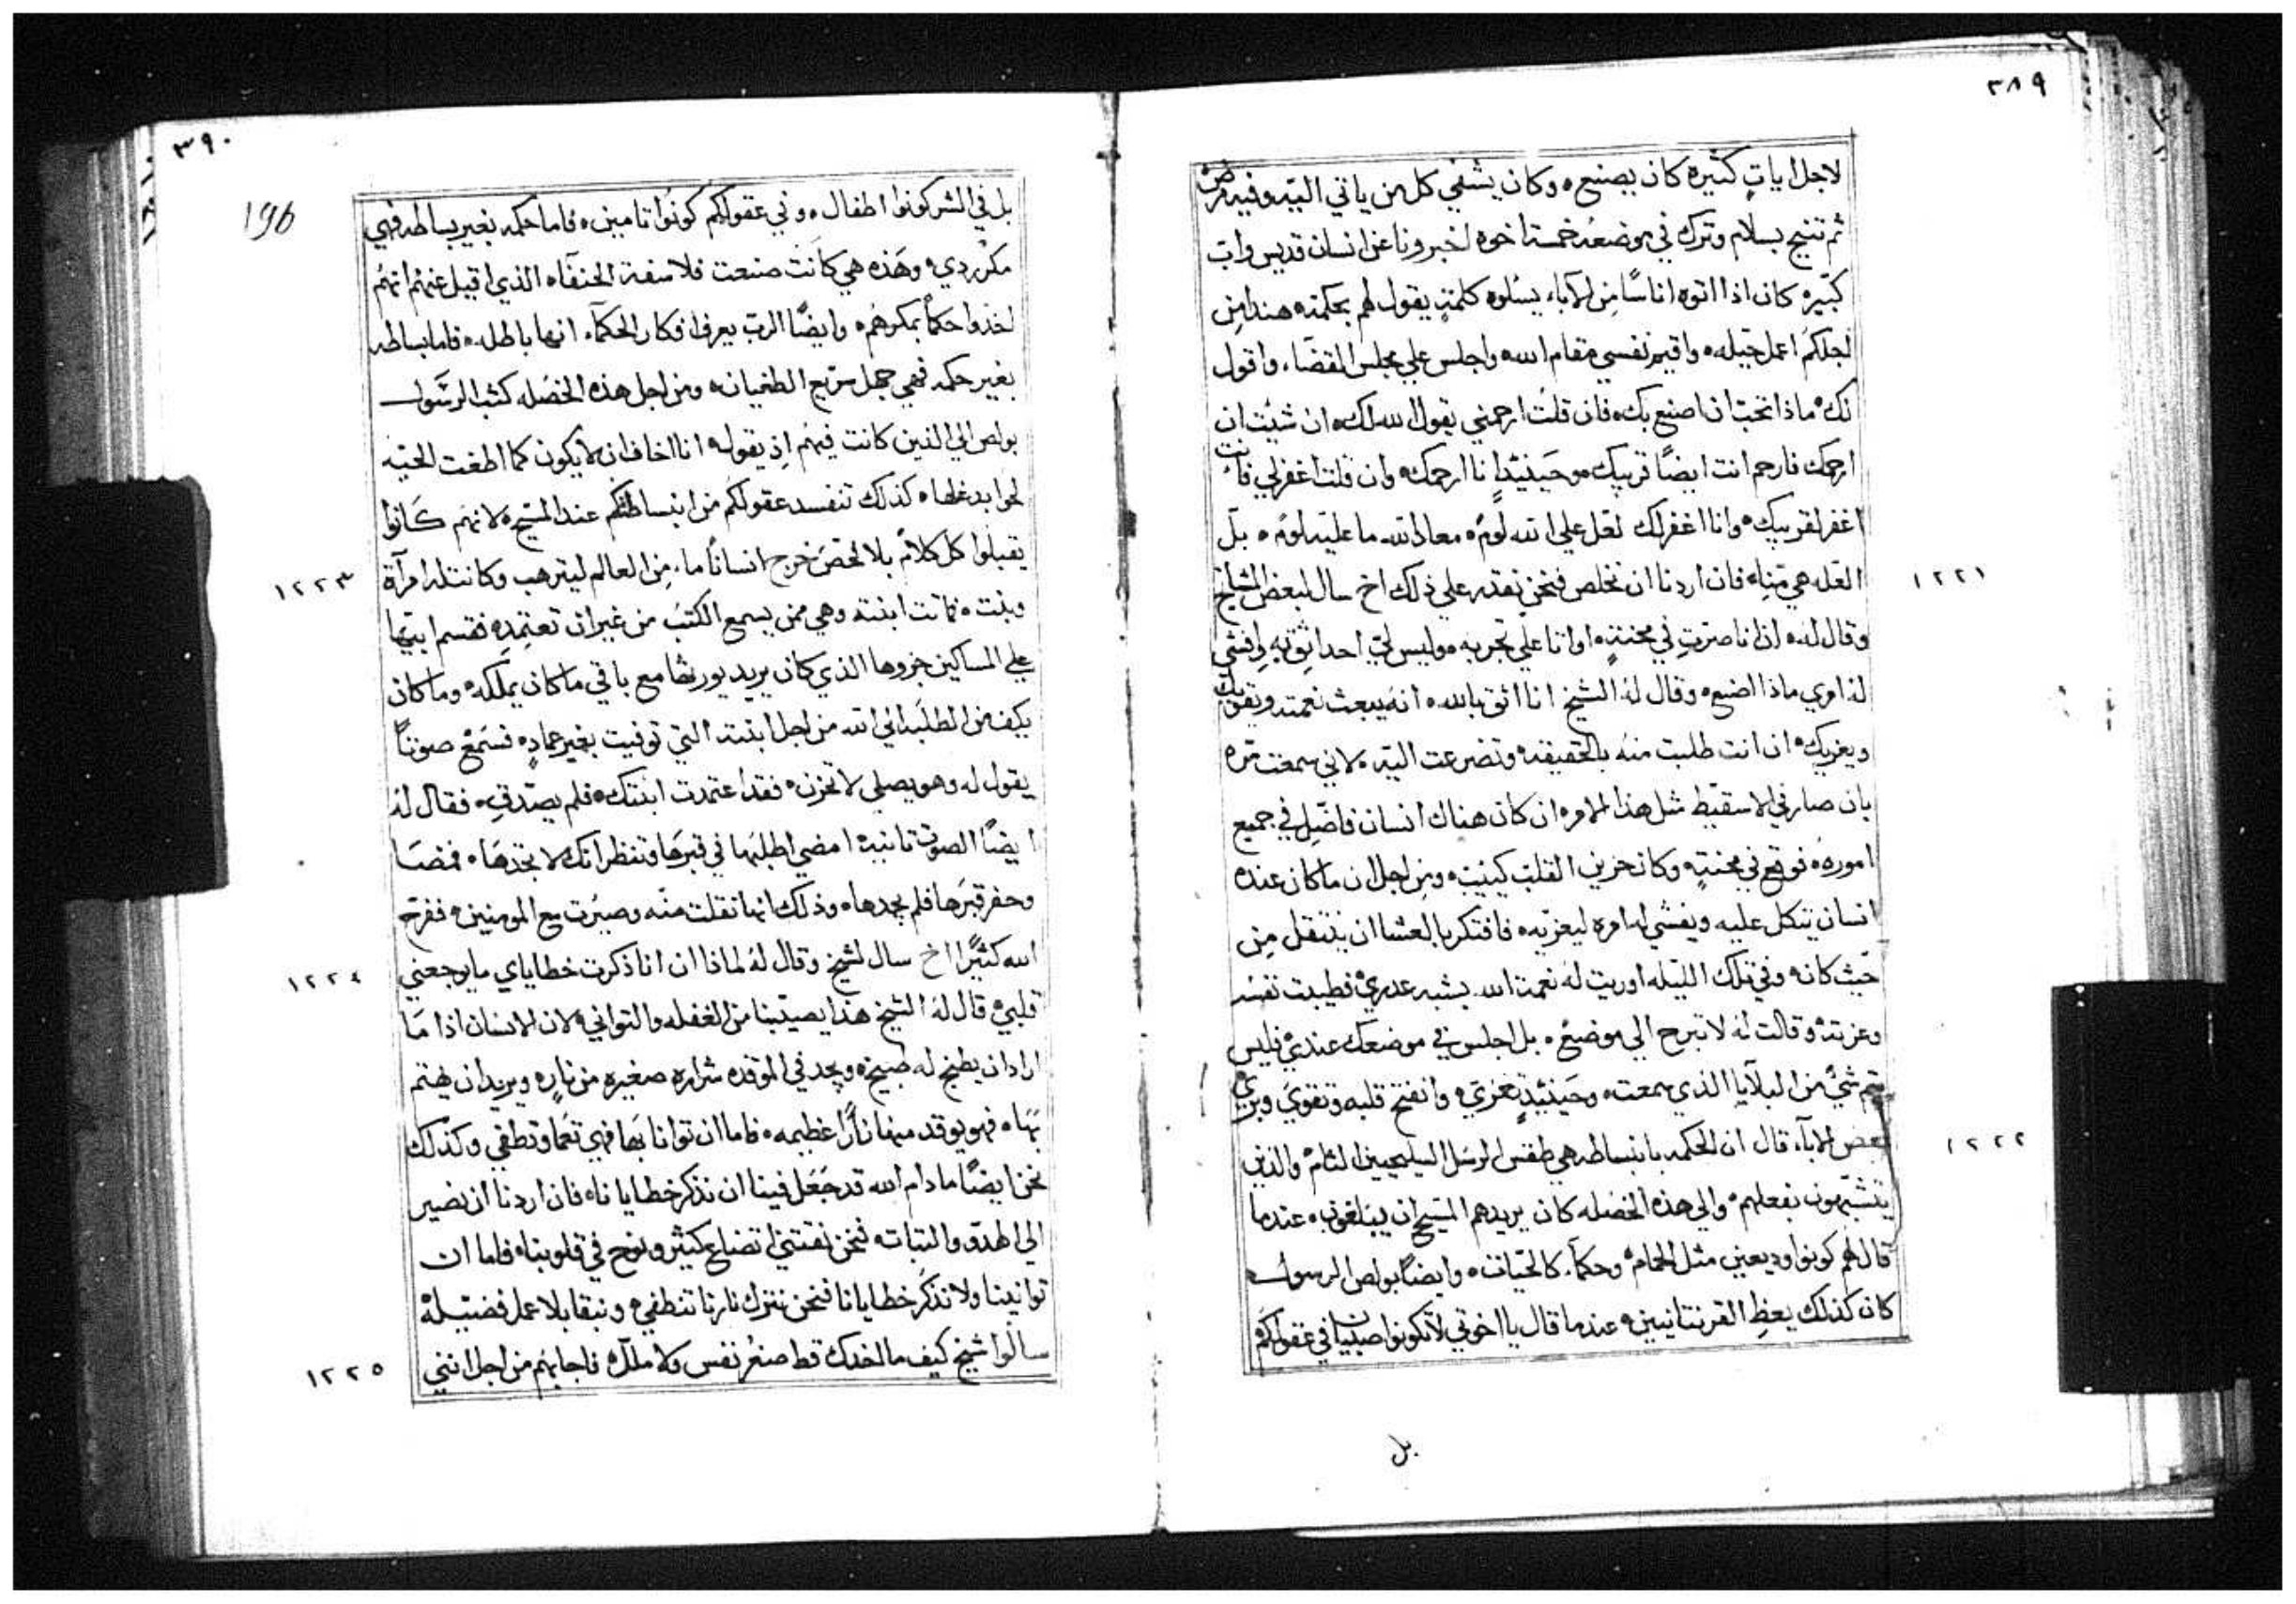 ٣٨٩
لاجل ايات كثيرة كان يصنع ٥ وكان يشفي كل من ياتي اليه وفيه مرض
ثم تنيح بسلام وترك في موضعه خمسة اخوه اخبرونا عن انسان قديس واب
كبير ٥ كان اذا اتوه اناسًا من الاباء يسلوه كلمة يقول لهم بحكمته هنذا من
اجلكم اعمل حيله ٥ واقيم نفسي مقام الله واجلس علي مجلس القضاء واقول
لك ماذا تحب ان اصنع بك ٥ فان قلت ارحمني يقول الله لك ٥ ان شيت ان
ارحمك فارحم انت ايضًا قريبك ٥ وحينيذ انا ارحمك ٥ وان قلت اغفر لي فانت
اغفر لقريبك ٥ وانا اغفر لك لعل علي الله لوم ٥ معاد الله ما عليه لوم ٥ بل
العله هي منا ٥ فان اردنا ان نخلص فنحن نقدر علي ذلك اخ سال لبعض المشايخ
١٢٢١
وقال له ٥ اذا انا صرت في محنة ٥ او اتا علي تجربه ٥ وليس لي احد اثق به وافشي
له امري ماذا اصنع ٥ وقال له الشيخ انا اثق بالله ٥ انه يبعث نعمته ويقويك
ويعزيك ٥ ان انت طلبت منه بالحقيقه وتضرعت اليه ٥ لاني سمعت مره
بان صار في الاسقيط مثل هذا الامر ٥ ان كان هناك انسان فاضل في جميع
اموره ٥ فوقع في محنة ٥ وكان حزين القلب كييب ٥ ومن اجل ان ما كان عنده
انسان يتكل عليه ويفشي له امره ليعزيه ٥ فافتكر بالعشا ان ينتقل من
حيث كان ٥ وفي تلك الليله اوريت له نعمة الله بشبه عدري فطيبت نفسه
وعزته وقالت له لا تبرح الي موضع ٥ بل اجلس في موضعك عندي فليس
يتم شيء من البلايا الذي سمعت ٥ وحينيذ تعزي ٥ وانفتح قلبه وتقوي وبري
بعض الاباء قال ان الحكمه بانبساطه هي طقس الرسل السليحيين التام والذين
١٢٢٢
يتشبهون بفعلهم ٥ والي هذه الخصله كان يريدهم المسيح ان يبلغون ٥ عندما
قال لهم كونوا وديعين مثل الحمام وحكماء كالحيات ٥ وايضًا بولص الرسول
كان كذلك يعظ القرنتانيين ٥ عندما قال يا اخوتي لا تكونوا صبيان في عقولكم
بل
٣٩٠
196
بل في الشر كونوا اطفال ٥ وفي عقولكم كونوا تامين ٥ فاما حكمه بغير بساطه فهي
مكر ردي ٥ وهذه هي كانت صنعت فلاسفة الحنفاء الذي قيل عنهم انهم
اخذوا حكماً بمكرهم ٥ وايضًا الرب يعرف افكار الحكماء انها باطله ٥ فاما بساطه
بغير حكمه فهي جهل سريع الطغيان ٥ ومن اجل هذه الخصله كتب الرسول
بولص الي الذين كانت فيهم اذ يقول ٥ انا اخاف ان لا يكون كما اطغت الحيه
لحوا بدغلها ٥ كذلك تنفسد عقولكم من انبساطتكم عند المسيح ٥ لانهم كانوا
يقبلوا كل كلام بلا فحص خرج انساناً ما من العالم ليترهب وكانت له امرآة
١٢٢٣
وبنت ٥ ماتت ابنته وهي ممن يسمع الكتب من غير ان تعتمد ٥ فقسم ابيها
علي المساكين جزوها الذي كان يريد يورثها مع باقي ما كان يملكه ٥ وما كان
يكف من الطلبه الي الله من اجل ابنته التي توفيت بغير عماد ٥ فسمع صوتاً
يقول له وهو يصلي لا تحزن ٥ فقد اعتمدت ابنتك ٥ فلم يصدق ٥ فقال له
ايضًا الصوت ثانية امضي اطلبها في قبرها وتنظر انك لا تجدها ٥ فمضا
وحفر قبرها فلم يجدها ٥ وذلك انها نقلت منه وصيرت مع المومنين ٥ ففرح
الله كثيرًا اخ سال لشيخ وقال له لماذا ان انا ذكرت خطاياي ما يوجعني
١٢٢٤
قلبي قال له الشيخ هذا يصيبنا من الغفله والتواني ٥ لان الانسان اذا ما
اراد ان يطبخ له طبيخ ٥ ويجد في الموقده شراره صغيره من نار ٥ ويريد ان يهتم
بها ٥ فهو يوقد منها نارًا عظيمه ٥ فاما ان توانا بها فهي تعما وتطفي وكذلك
نحن ايضًا ما دام الله قد جعل فينا ان نذكر خطايانا ٥ فان اردنا ان نصير
الي الهدو والتبات ٥ فنحن نقتني اتضاع كثير ونوح في قلوبنا ٥ فاما ان
توانينا ولا نذكر خطايانا فنحن نترك نارنا تنطفي ٥ ونبقا بلا عمل فضيلة
سالوا شيخ كيف ما اخدك قط صغر نفس ولا ملل ٥ فاجابهم من اجل انني
١٢٢٥